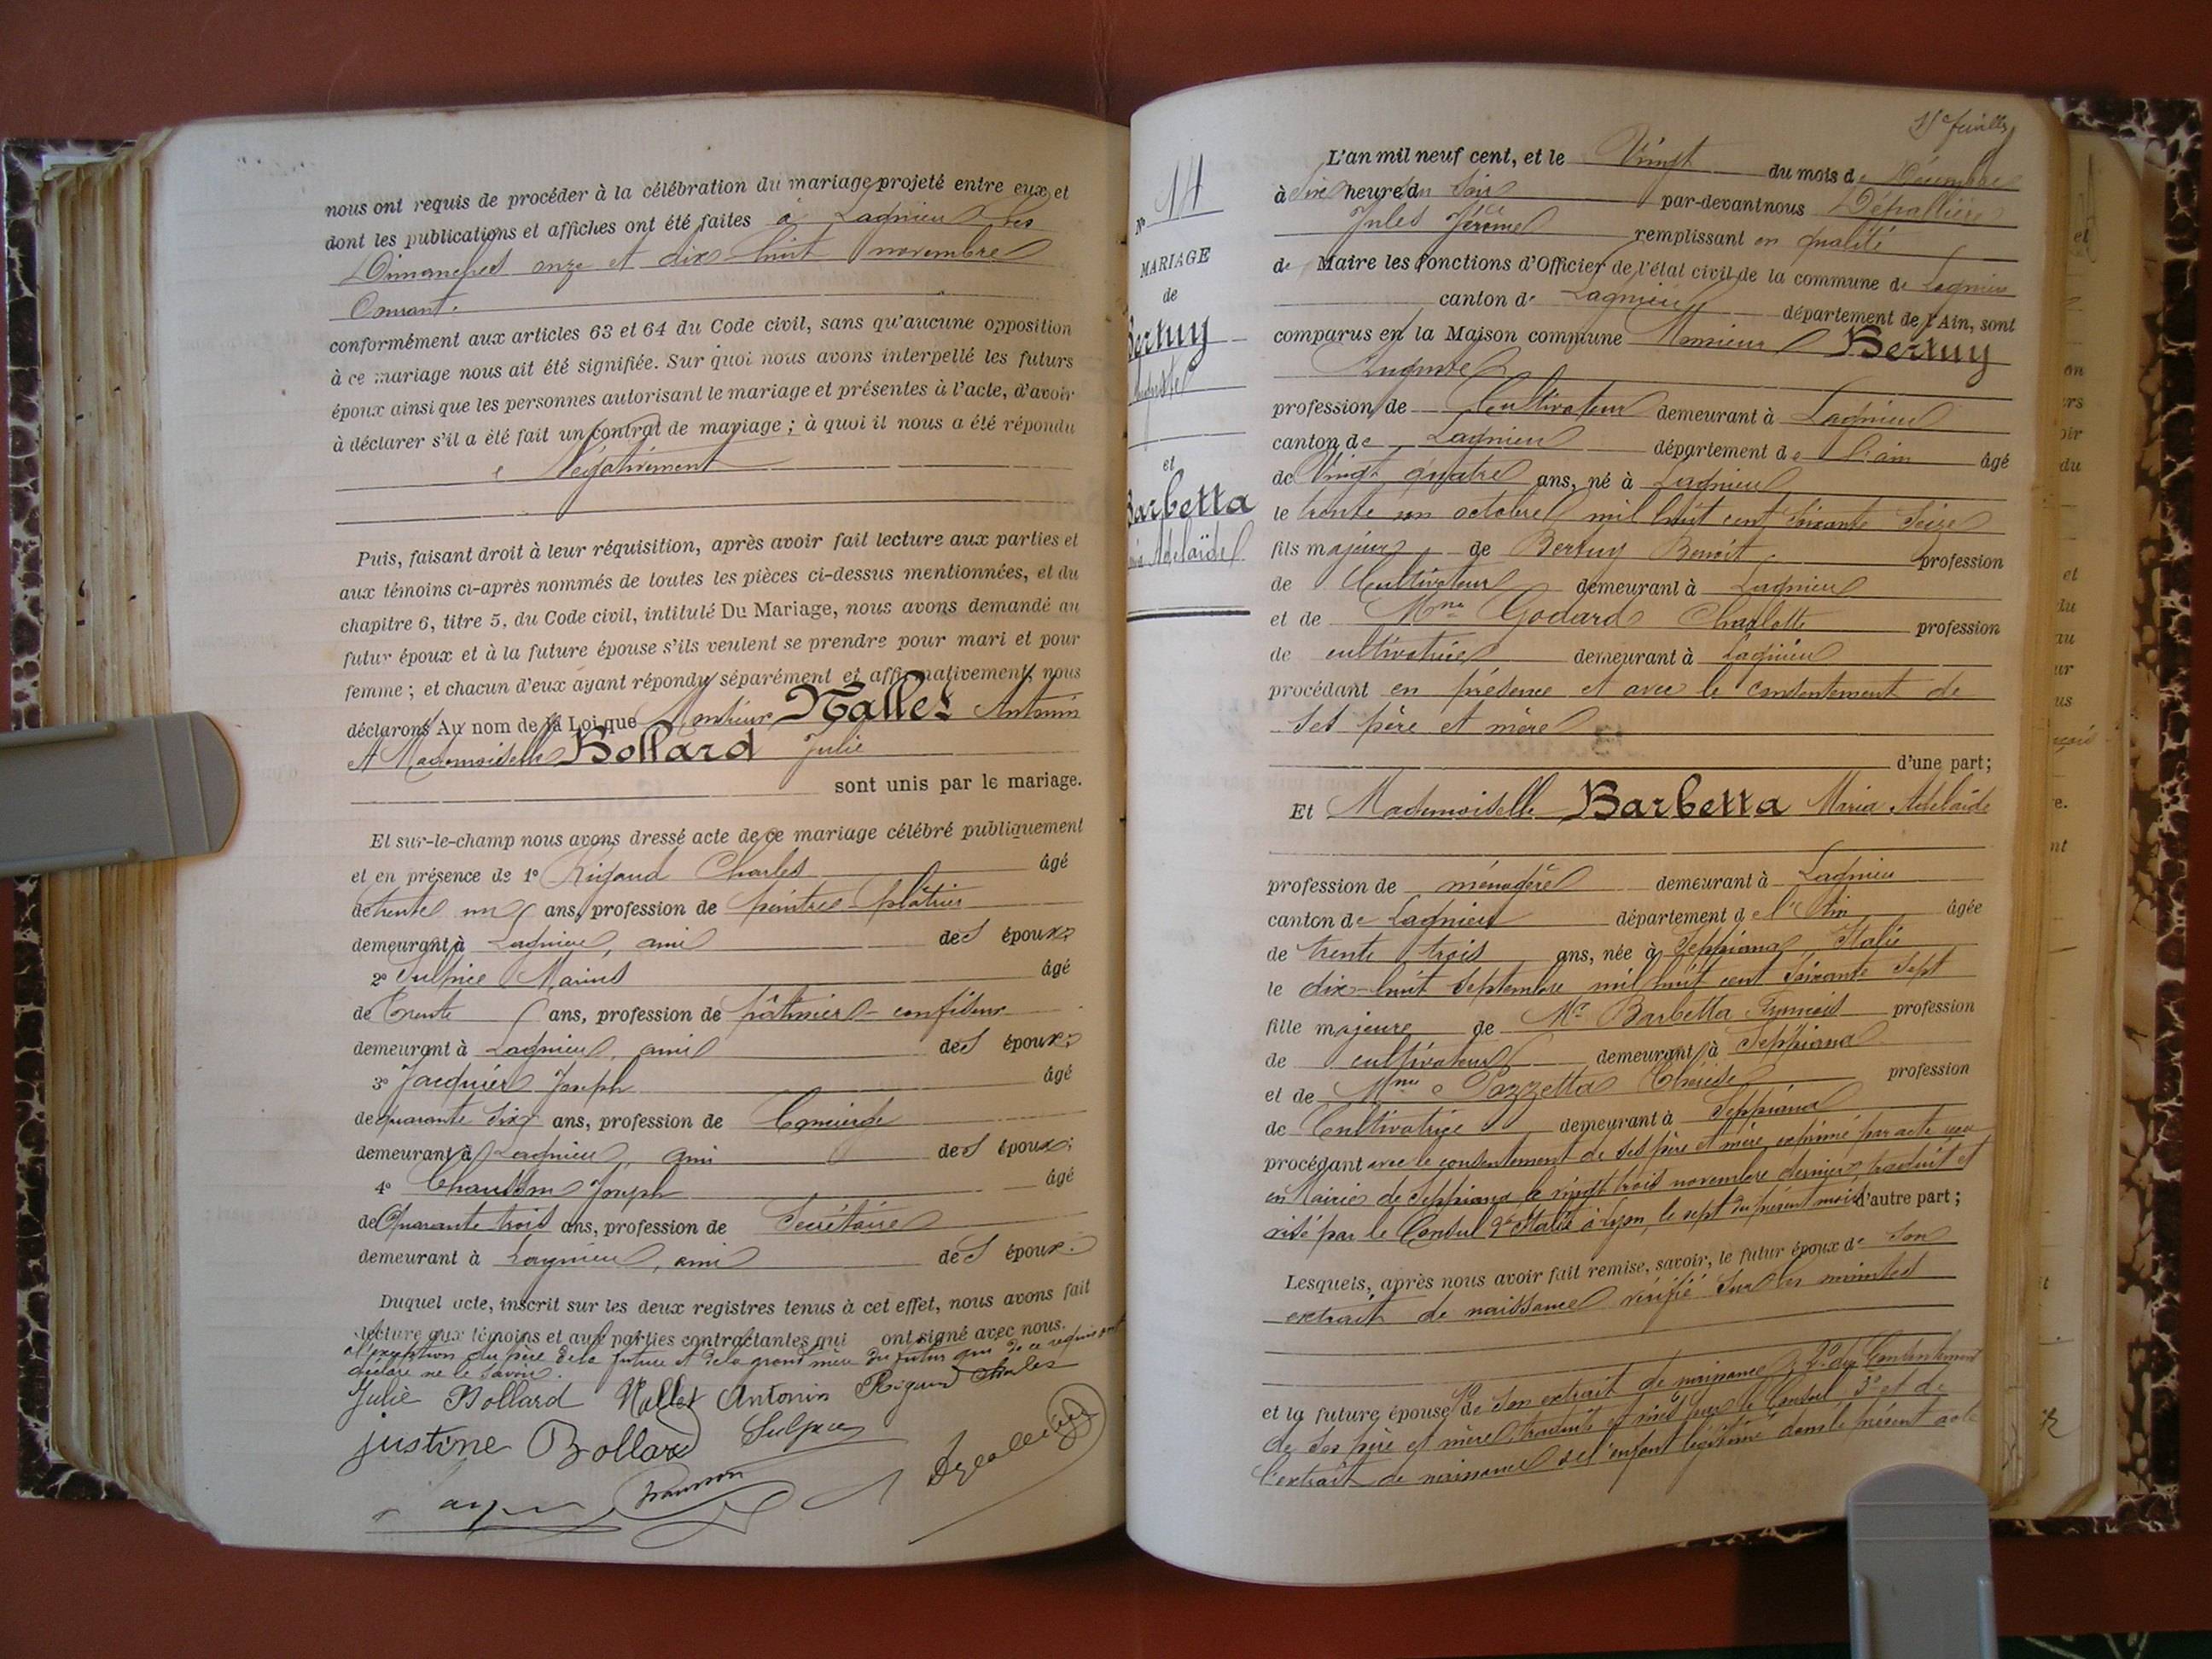 nous ont requis de procéder à la célébration du mariage projeté entre eux et
dont les publications et affiches ont été faites à Lagnieu les
Dimanches onze et dix huit novembre
Courant.
conformément aux articles 63 et 64 du Code civil, sans qu'aucune opposition
à ce mariage nous ait été signifiée. Sur quoi nous avons interpellé les futurs
époux ainsi que les personnes autorisant le mariage et présentes à l'acte, d'avoir
à déclarer s'il a été fait un contrat de mariage ; à quoi il nous a été répondu
Négativement
Puis, faisant droit à leur réquisition, après avoir fait lecture aux parties et
aux témoins ci-après nommés de toutes les pièces ci-dessus mentionnées, et du
chapitre 6, titre 5, du Code civil, intitulé Du Mariage, nous avons demandé au
futur époux et à la future épouse s'ils veulent se prendre pour mari et pour
femme ; et chacun d'eux ayant répondu séparément et affirmativement, nous
déclarons Au nom de la Loi que Monsieur Nallet Antonin
et Mademoiselle Bollard Julie
sont unis par le mariage.
Et sur-le-champ nous avons dressé acte de ce mariage célébré publiquement
et en présence de 1° Rigaud Charles âgé
de trente un ans, profession de peintre-plâtrier
demeurant à Lagnieu, ami des époux;
2° Sulpice Marius âgé
de Trente ans, profession de pâtissier-confiseur
demeurant à Lagnieu, ami des époux;
3° Jacquier Joseph âgé
de quarante six ans, profession de Concierge
demeurant à Lagnieu, ami des époux;
4° Chausson Joseph âgé
de Quarante trois ans, profession de Secrétaire
demeurant à Lagnieu, ami des époux.
Duquel acte, inscrit sur les deux registres tenus à cet effet, nous avons fait
lecture aux témoins et aux parties contractantes qui ont signé avec nous.
à l'exception du père de la future et de la grand mère du futur qui de ce requis ont
déclaré ne le savoir.
Julie Bollard Nallet Antonin Rigaud Charles
justine Bollard Sulpice
15e feuillet
N° 14
MARIAGE
de
Bertuy
Auguste
et
Barbetta
Maria Adelaïde
L'an mil neuf cent, et le Vingt du mois de Décembre
à Six heure du Soir par-devant nous Dépallière
Jules Jérôme remplissant en qualité
de Maire les fonctions d'Officier de l'état civil de la commune de Lagnieu
canton de Lagnieu département de l'Ain, sont
comparus en la Maison commune Monsieur Bertuy
Auguste
profession de Cultivateur demeurant à Lagnieu
canton de Lagnieu département de l'ain âgé
de Vingt quatre ans, né à Lagnieu
le trente un octobre mil huit cent soixante seize
fils majeur de Bertuy Benoît profession
de Cultivateur demeurant à Lagnieu
et de Mme Godard Charlotte profession
de cultivatrice demeurant à Lagnieu
procédant en présence et avec le consentement de
ses père et mère
d'une part;
Et Mademoiselle Barbetta Maria Adelaïde
profession de ménagère demeurant à Lagnieu
canton de Lagnieu département de l'Ain âgée
de trente trois ans, née à Seppiana Italie
le dix-huit Septembre mil huit cent soixante sept
fille majeure de Mr Barbetta François profession
de cultivateur demeurant à Seppiana
et de Mme Pozzetta Thérèse profession
de Cultivatrice demeurant à Seppiana
procédant avec le consentement de ses père et mère exprimé par acte reçu
en Mairie de Seppiana le vingt trois novembre dernier, traduit et
visé par le Consul d'Italie à Lyon, le sept du présent mois d'autre part ;
Lesquels, après nous avoir fait remise, savoir, le futur époux de son
extrait de naissance vérifié sur les minutes
et la future épouse 1° de son extrait de naissance, 2° du Consentement
de ses père et mère, traduits et visés par le Consul 3° et de
l'extrait de naissance de l'enfant légitimé dans le présent acte